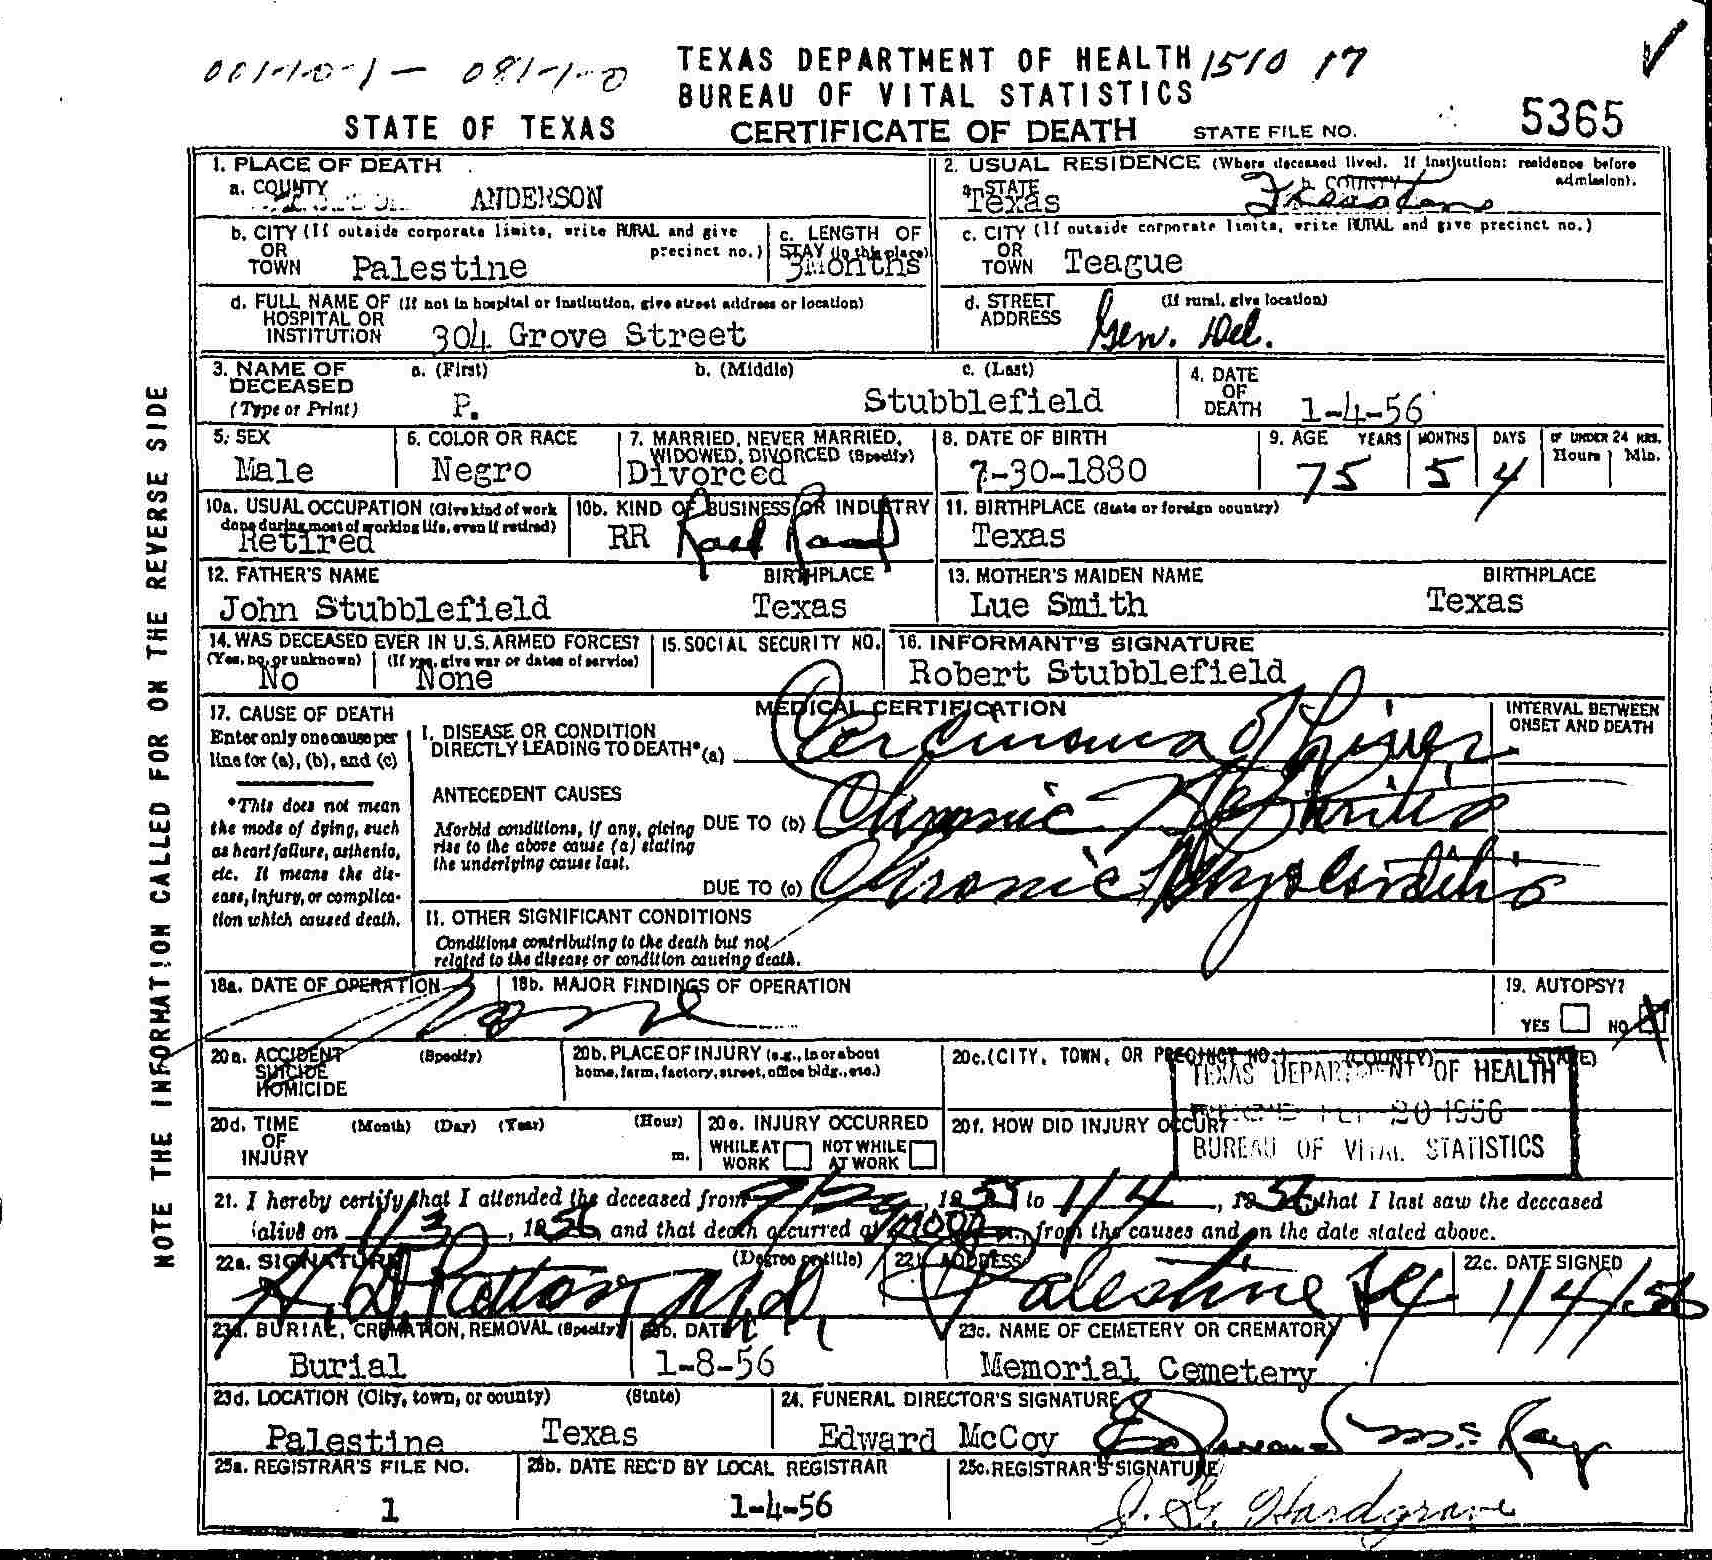 TEXAS DEPARTMENT OF HEALTH 1510 17
BUREAU OF VITAL STATISTICS
STATE OF TEXAS CERTIFICATE OF DEATH STATE FILE NO. 5365
1. PLACE OF DEATH
a. COUNTY ANDERSON
2. USUAL RESIDENCE (Where deceased lived. If institution: residence before admission).
a. STATE Texas b. COUNTY Freestone
b. CITY (If outside corporate limits, write RURAL and give precinct no.)
OR
TOWN Palestine
c. LENGTH OF
STAY (in this place)
3Months
c. CITY (If outside corporate limits, write RURAL and give precinct no.)
OR
TOWN Teague
d. FULL NAME OF (If not in hospital or institution, give street address or location)
HOSPITAL OR
INSTITUTION 304 Grove Street
d. STREET (If rural, give location)
ADDRESS Gen. Del.
3. NAME OF a. (First) b. (Middle) c. (Last)
DECEASED
(Type or Print) P. Stubblefield
4. DATE
OF
DEATH 1-4-56
5. SEX
Male
6. COLOR OR RACE
Negro
7. MARRIED, NEVER MARRIED,
WIDOWED, DIVORCED (Specify)
Divorced
8. DATE OF BIRTH
7-30-1880
9. AGE YEARS MONTHS DAYS IF UNDER 24 HRS.
Hours Min.
75 5 4
10a. USUAL OCCUPATION (Give kind of work
done during most of working life, even if retired)
Retired
10b. KIND OF BUSINESS OR INDUSTRY
RR Rail Road
11. BIRTHPLACE (State or foreign country)
Texas
12. FATHER'S NAME BIRTHPLACE
John Stubblefield Texas
13. MOTHER'S MAIDEN NAME BIRTHPLACE
Lue Smith Texas
14. WAS DECEASED EVER IN U.S. ARMED FORCES?
(Yes, no, or unknown) (If yes, give war or dates of service)
No None
15. SOCIAL SECURITY NO.
16. INFORMANT'S SIGNATURE
Robert Stubblefield
MEDICAL CERTIFICATION
17. CAUSE OF DEATH
Enter only one cause per
line for (a), (b), and (c)
*This does not mean
the mode of dying, such
as heart failure, asthenia,
etc. It means the dis-
ease, injury, or complica-
tion which caused death.
I. DISEASE OR CONDITION
DIRECTLY LEADING TO DEATH* (a) Carcinoma of Liver
INTERVAL BETWEEN
ONSET AND DEATH
ANTECEDENT CAUSES
Morbid conditions, if any, giving
rise to the above cause (a) stating
the underlying cause last.
DUE TO (b) Chronic Nephritis
DUE TO (c) Chronic Myocarditis
II. OTHER SIGNIFICANT CONDITIONS
Conditions contributing to the death but not
related to the disease or condition causing death.
18a. DATE OF OPERATION 18b. MAJOR FINDINGS OF OPERATION
None
19. AUTOPSY?
YES NO X
20a. ACCIDENT (Specify)
SUICIDE
HOMICIDE
20b. PLACE OF INJURY (e.g., in or about
home, farm, factory, street, office bldg., etc.)
20c. (CITY, TOWN, OR PRECINCT NO.) (COUNTY) (STATE)
20d. TIME (Month) (Day) (Year) (Hour)
OF
INJURY m.
20e. INJURY OCCURRED
WHILE AT WORK NOT WHILE AT WORK
20f. HOW DID INJURY OCCUR?
TEXAS DEPARTMENT OF HEALTH
20 1956
BUREAU OF VITAL STATISTICS
21. I hereby certify that I attended the deceased from , 1955 to 1/4, 1956, that I last saw the deceased
alive on 1/3, 1956, and that death occurred at m., from the causes and on the date stated above.
22a. SIGNATURE (Degree or title)
H. D. Patton, M.D.
22b. ADDRESS
Palestine
22c. DATE SIGNED
1/4/56
23a. BURIAL, CREMATION, REMOVAL (Specify)
Burial
23b. DATE
1-8-56
23c. NAME OF CEMETERY OR CREMATORY
Memorial Cemetery
23d. LOCATION (City, town, or county) (State)
Palestine Texas
24. FUNERAL DIRECTOR'S SIGNATURE
Edward McCoy
25a. REGISTRAR'S FILE NO.
1
25b. DATE REC'D BY LOCAL REGISTRAR
1-4-56
25c. REGISTRAR'S SIGNATURE
J. G. Hardgrave
NOTE THE INFORMATION CALLED FOR ON THE REVERSE SIDE